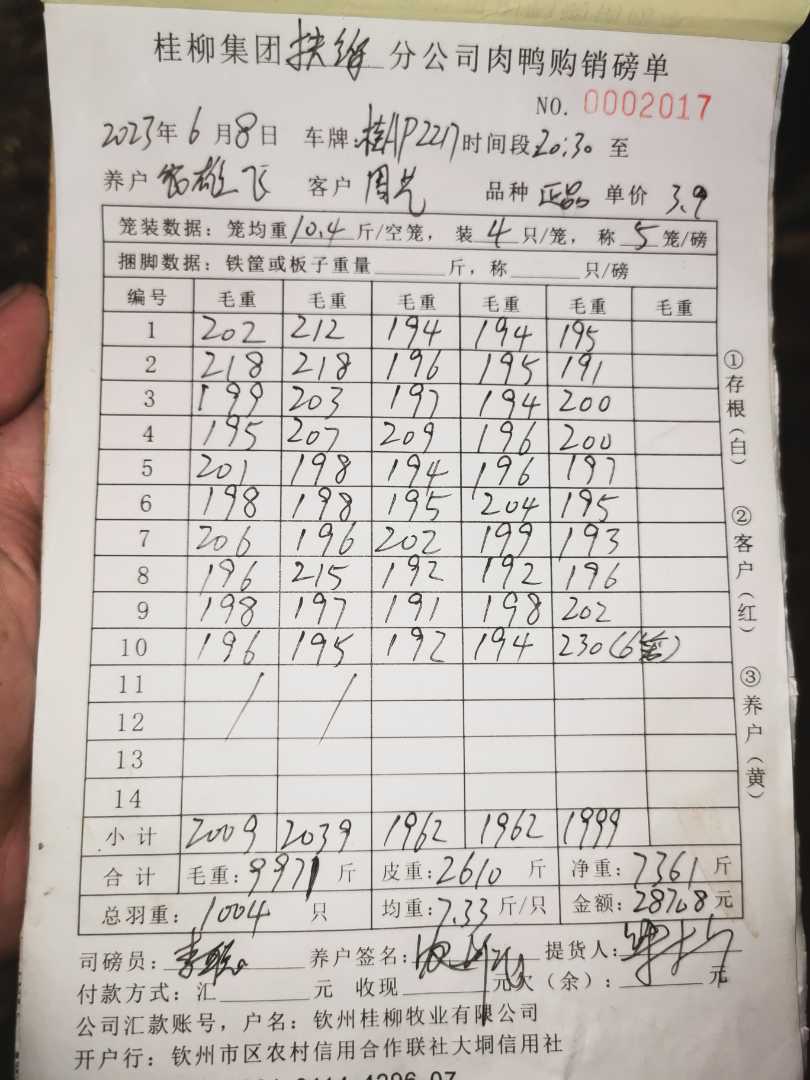 桂柳集团扶绥分公司肉鸭购销磅单
NO. 0002017
2023年6月8日 车牌:桂AP2217时间段20:30至
养户 雄飞 客户 周 品种 正品 单价 3.9
笼装数据：笼均重10.4斤/空笼，装4只/笼，称5笼/磅
捆脚数据：铁筐或板子重量 斤，称 只/磅
编号 毛重 毛重 毛重 毛重 毛重 毛重
1 202 212 194 194 195
2 218 218 196 195 191
3 199 203 197 194 200
4 195 207 209 196 200
5 201 198 194 196 197
6 198 198 195 204 195
7 206 196 202 199 193
8 196 215 192 192 196
9 198 197 191 198 202
10 196 195 192 194 230(6笼)
11 /  /
12
13
14
小计 2009 2039 1962 1962 1999
合计 毛重:9971斤 皮重:2610斤 净重:7361斤
总羽重：1004只 均重:7.33斤/只 金额:28708元
司磅员： 养户签名： 提货人：
付款方式：汇 元 收现 元欠（余）： 元
公司汇款账号，户名：钦州桂柳牧业有限公司
开户行：钦州市区农村信用合作联社大垌信用社
①存根（白）
②客户（红）
③养户（黄）